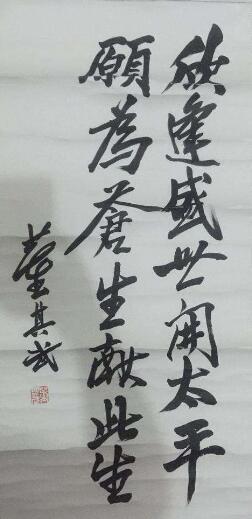 欣逢盛世開太平
願為蒼生献此生
董其武